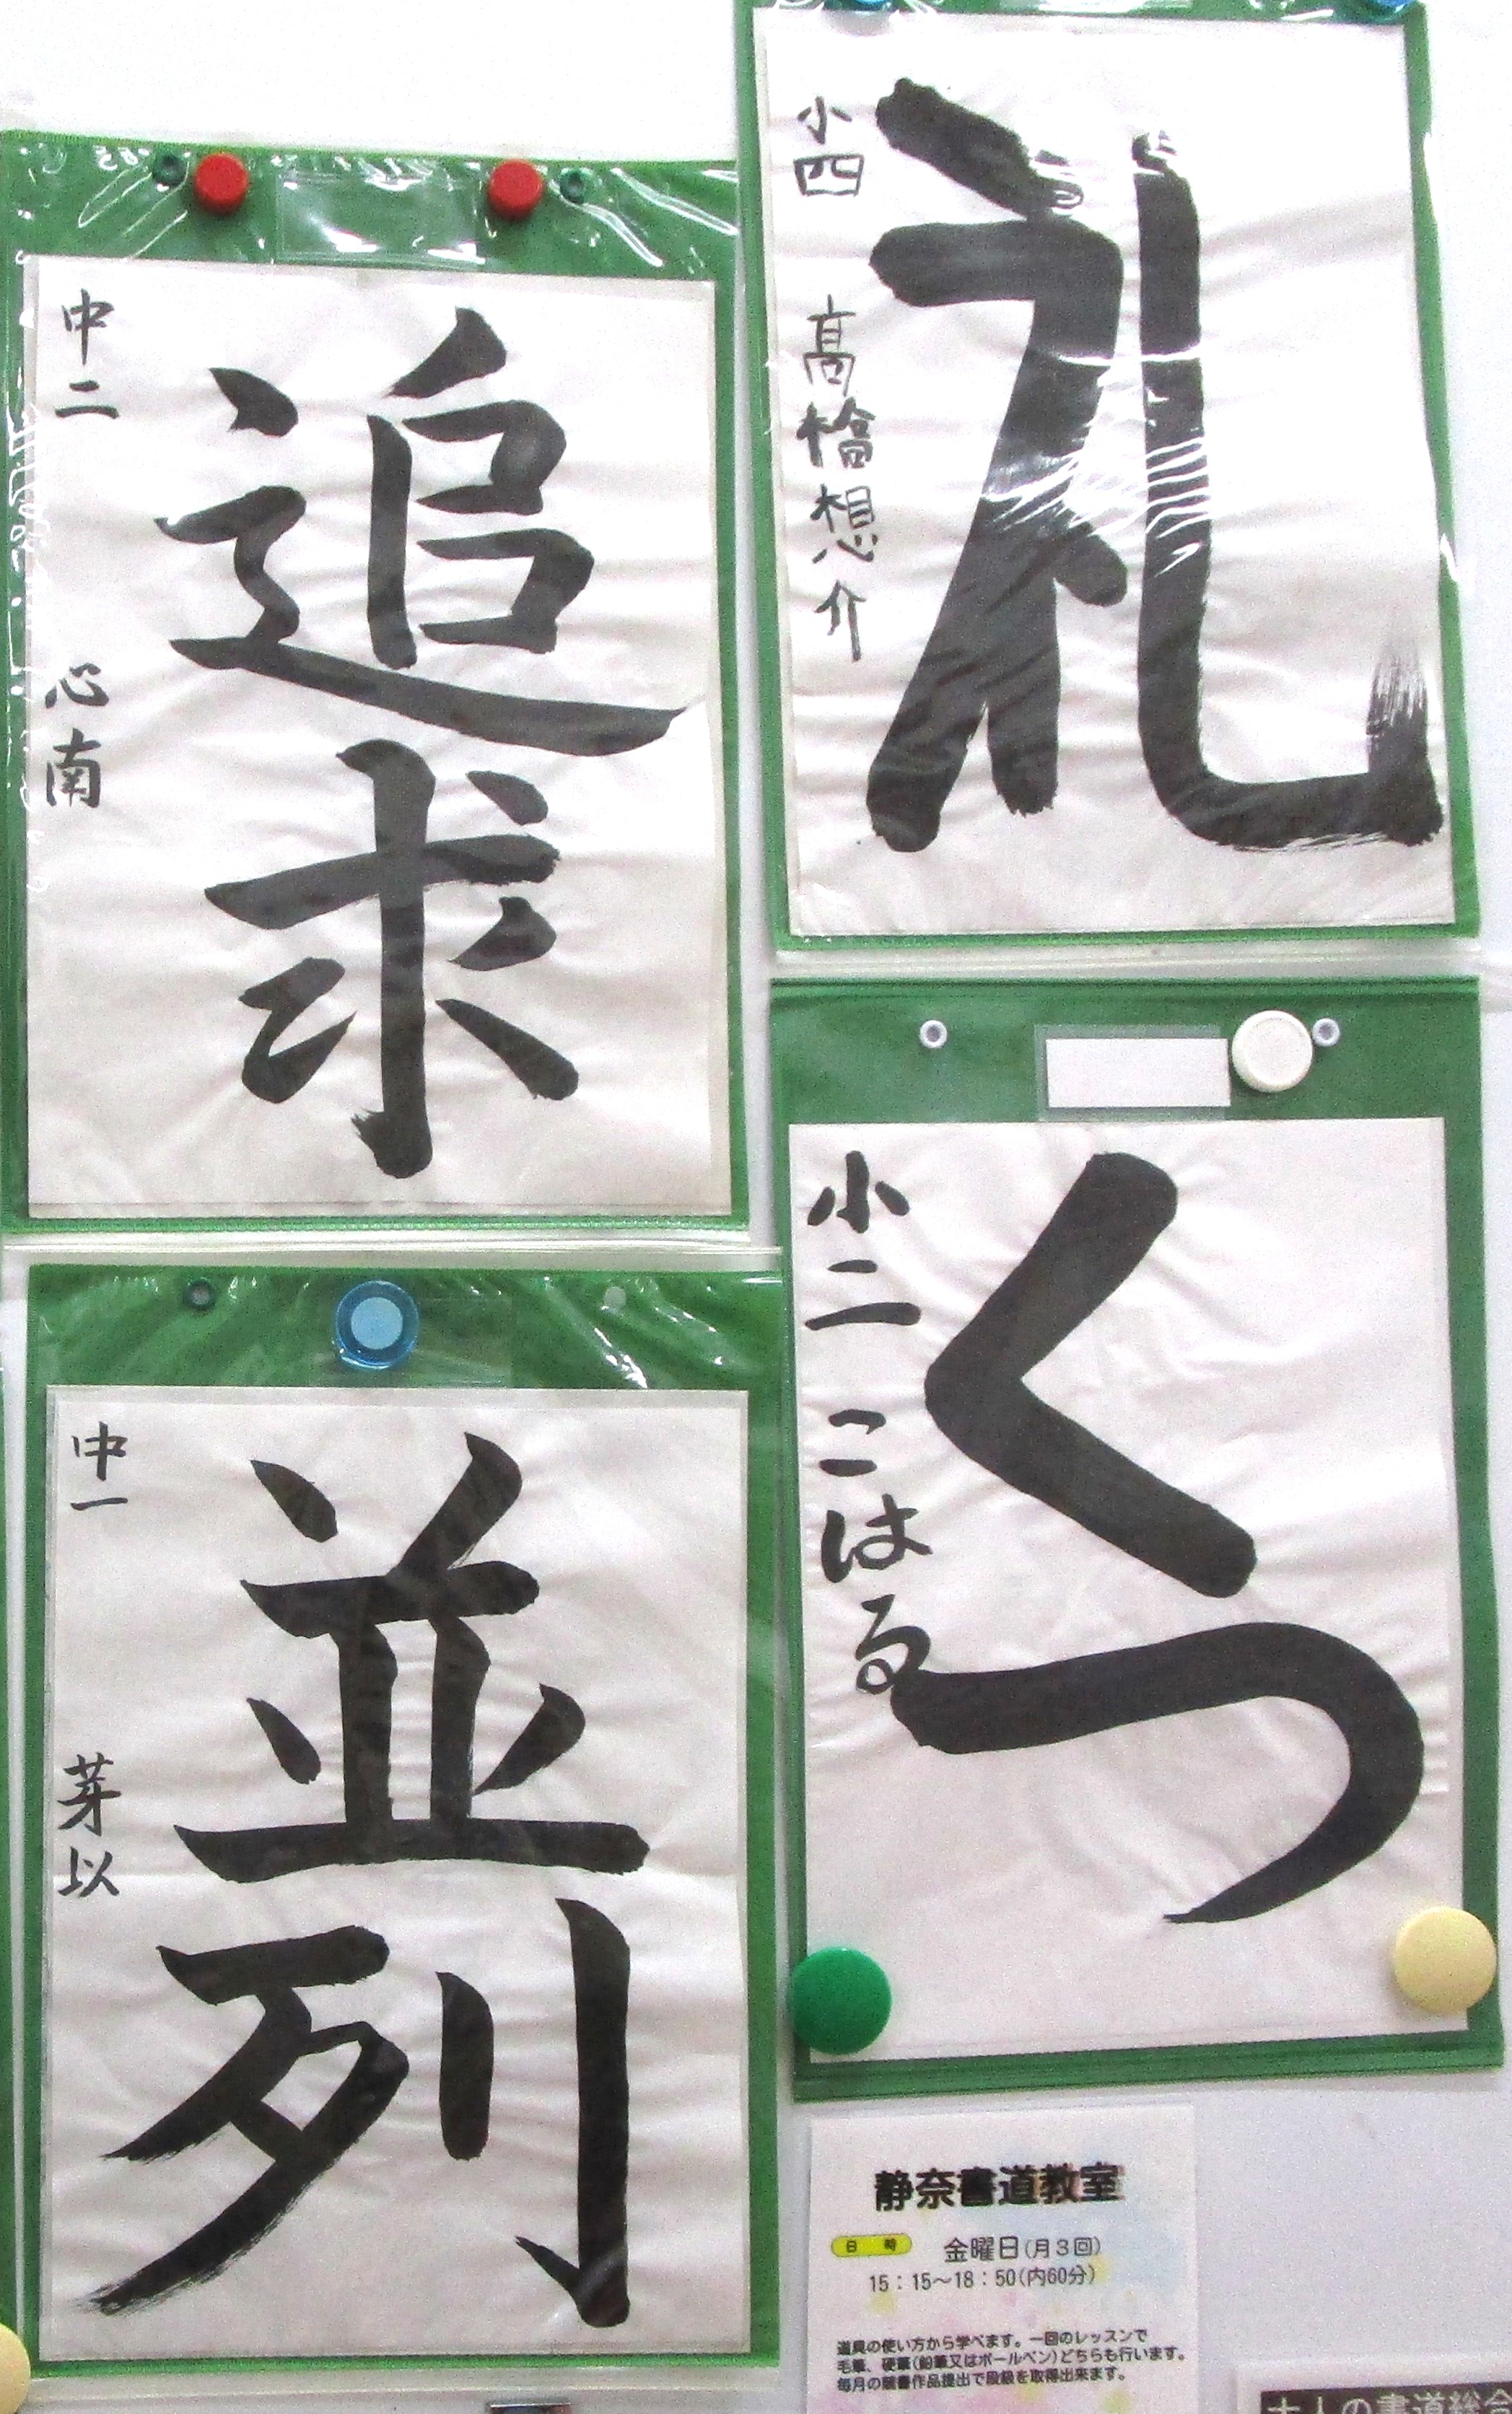 礼
小四 高橋想介
追求
中二 心南
くつ
小二 こはる
並列
中一 芽以
静奈書道教室
日時 金曜日(月3回)
15:15~18:50(内60分)
道具の使い方から学べます。一回のレッスンで
毛筆、硬筆(鉛筆又はボールペン)どちらも行います。
毎月の競書作品提出で段級を取得出来ます。
大人の書道総合